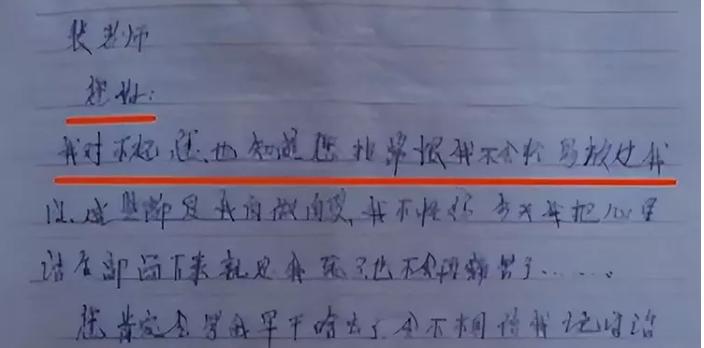 张老师
您好:
我对不起您,也知道您非常恨我不会轻易放过我
但这些都是我自做自受,我不怪您 今天我把心里
话全部写下来就是我死了也不会
您肯定会 我早干啥去了 会不相信我 话